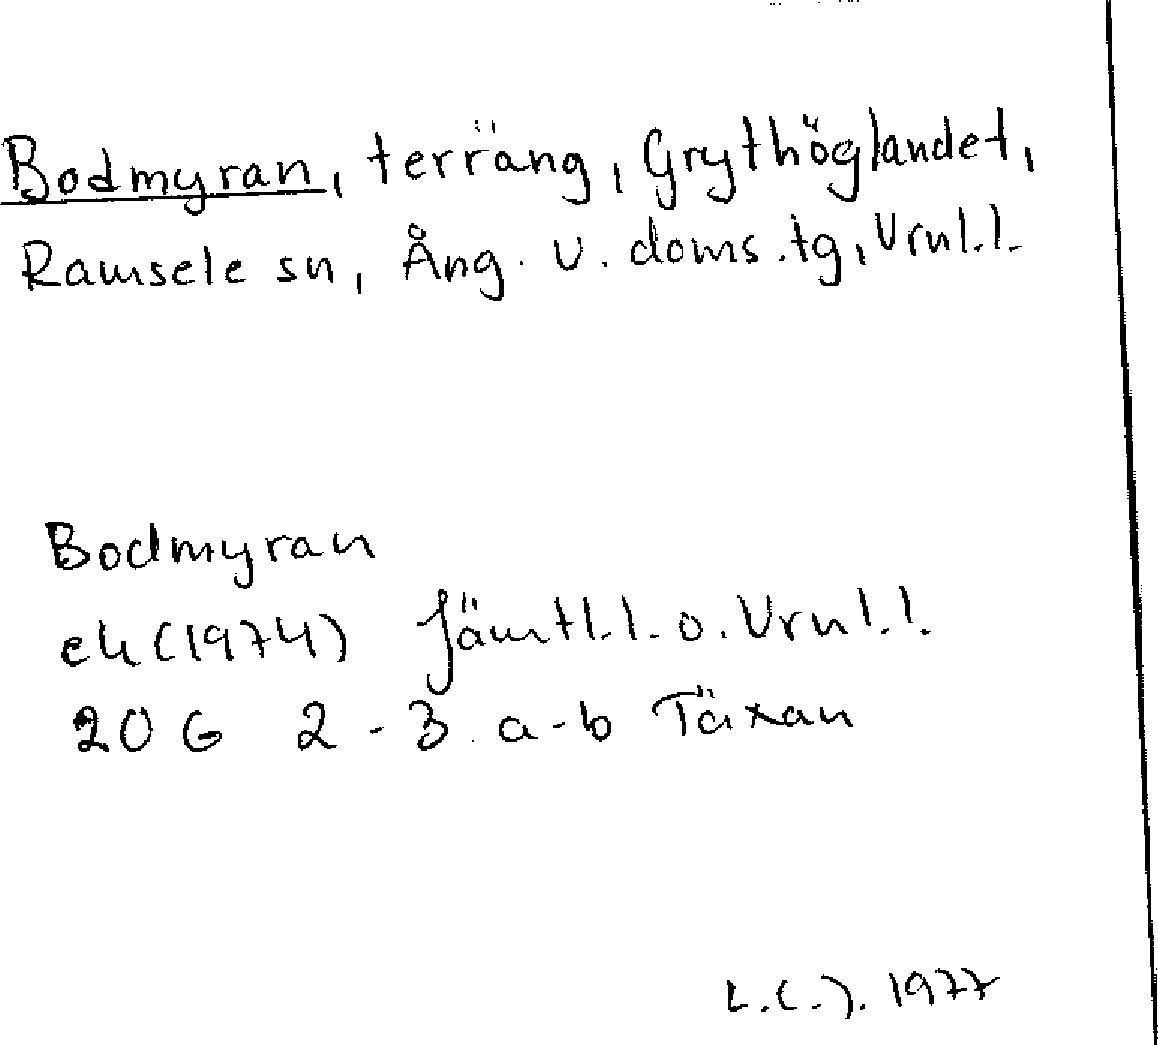 Bodmyran, terräng, Grythöglandet,
Ramsele sn, Ång. v. doms.tg, Vrnl.l.
Bodmyran
ek (1974) Jämtl.l. o. Vrnl.l.
20 G 2-3 a-b Täxan
L.C.J. 1977